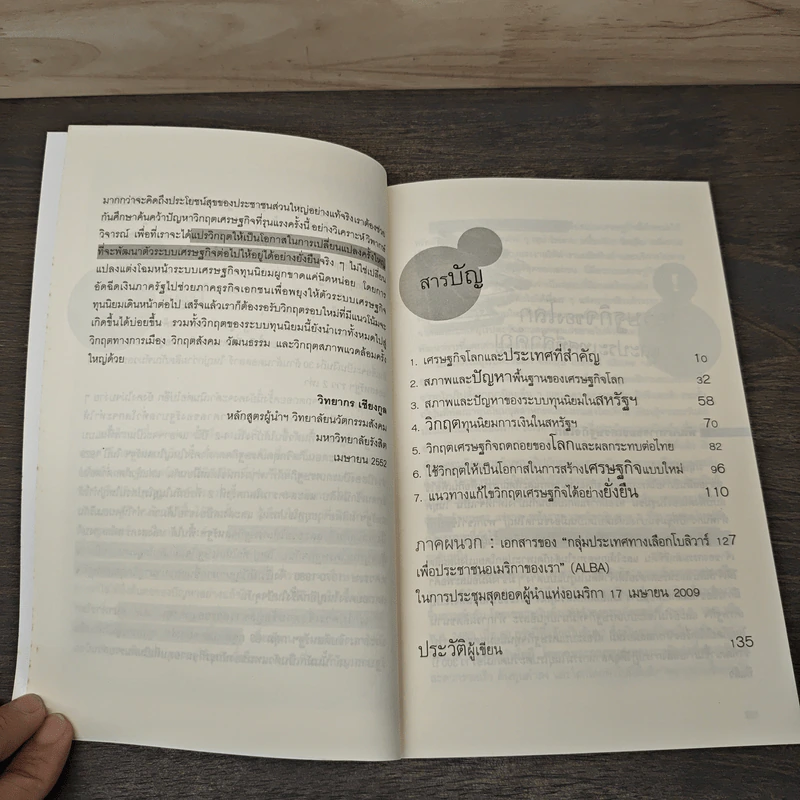 มากกว่าจะคิดถึงประโยชน์สุขของประชาชนส่วนใหญ่อย่างแท้จริงเราต้องช่วย
กันศึกษาค้นคว้าปัญหาวิกฤตเศรษฐกิจที่รุนแรงครั้งนี้ อย่างวิเคราะห์ วิพากษ์
วิจารณ์ เพื่อที่เราจะได้แปรวิกฤตให้เป็นโอกาสในการเปลี่ยนแปลงครั้งใหญ่
ที่จะพัฒนาตัวระบบเศรษฐกิจต่อไปให้อยู่ได้อย่างยั่งยืนจริง ๆ ไม่ใช่เปลี่ยน
แปลงแต่งโฉมหน้าระบบเศรษฐกิจทุนนิยมผูกขาดแค่นิดหน่อย โดยการ
อัดฉีดเงินภาครัฐไปช่วยภาคธุรกิจเอกชนเพื่อพยุงให้ตัวระบบเศรษฐกิจ
ทุนนิยมเดินหน้าต่อไป เสร็จแล้วเราก็ต้องรอรับวิกฤตรอบใหม่ที่มีแนวโน้มจะ
เกิดขึ้นได้บ่อยขึ้น รวมทั้งวิกฤตของระบบทุนนิยมนี้ยังนำเราทั้งหมดไปสู่
วิกฤตทางการเมือง วิกฤตสังคม วัฒนธรรม และวิกฤตสภาพแวดล้อมครั้ง
ใหญ่ด้วย
วิทยากร เชียงกูล
หลักสูตรผู้นำฯ วิทยาลัยนวัตกรรมสังคม
มหาวิทยาลัยรังสิต
เมษายน 2552
สารบัญ
1. เศรษฐกิจโลกและประเทศที่สำคัญ 10
2. สภาพและปัญหาพื้นฐานของเศรษฐกิจโลก 32
3. สภาพและปัญหาของระบบทุนนิยมในสหรัฐฯ 58
4. วิกฤตทุนนิยมการเงินในสหรัฐฯ 70
5. วิกฤตเศรษฐกิจถดถอยของโลกและผลกระทบต่อไทย 82
6. ใช้วิกฤตให้เป็นโอกาสในการสร้างเศรษฐกิจแบบใหม่ 96
7. แนวทางแก้ไขวิกฤตเศรษฐกิจได้อย่างยั่งยืน 110
ภาคผนวก : เอกสารของ “กลุ่มประเทศทางเลือกโบลิวาร์ 127
เพื่อประชาชนอเมริกาของเรา” (ALBA)
ในการประชุมสุดยอดผู้นำแห่งอเมริกา 17 เมษายน 2009
ประวัติผู้เขียน 135